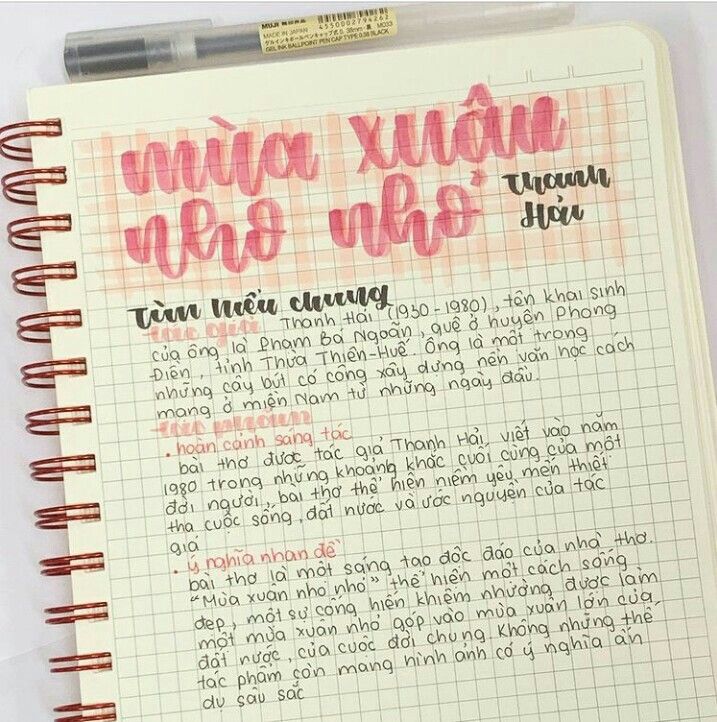 MUJI 無印良品
MADE IN JAPAN
4550002794262
ゲルインキボールペンキャップ式 0.38mm・黒 M033
GEL INK BALLPOINT PEN CAP TYPE 0.38 BLACK
mùa xuân
nho nhỏ
Thanh
Hải
Tìm hiểu chung
tác giả Thanh Hải (1930-1980), tên khai sinh
của ông là Phạm Bá Ngoãn, quê ở huyện Phong
Điền, tỉnh Thừa Thiên-Huế. Ông là một trong
những cây bút có công xây dựng nền văn học cách
mạng ở miền Nam từ những ngày đầu.
tác phẩm
• hoàn cảnh sáng tác
bài thơ được tác giả Thanh Hải, viết vào năm
1980 trong những khoảng khắc cuối cùng của một
đời người, bài thơ thể hiện niềm yêu mến thiết
tha cuộc sống, đất nước và ước nguyện của tác
giả
• ý nghĩa nhan đề
bài thơ là một sáng tạo độc đáo của nhà thơ.
"Mùa xuân nho nhỏ" thể hiện một cách sống
đẹp, một sự cống hiến khiêm nhường được làm
một mùa xuân nhỏ góp vào mùa xuân lớn của
đất nước, của cuộc đời chung không những thế
tác phẩm còn mang hình ảnh có ý nghĩa ẩn
dụ sâu sắc